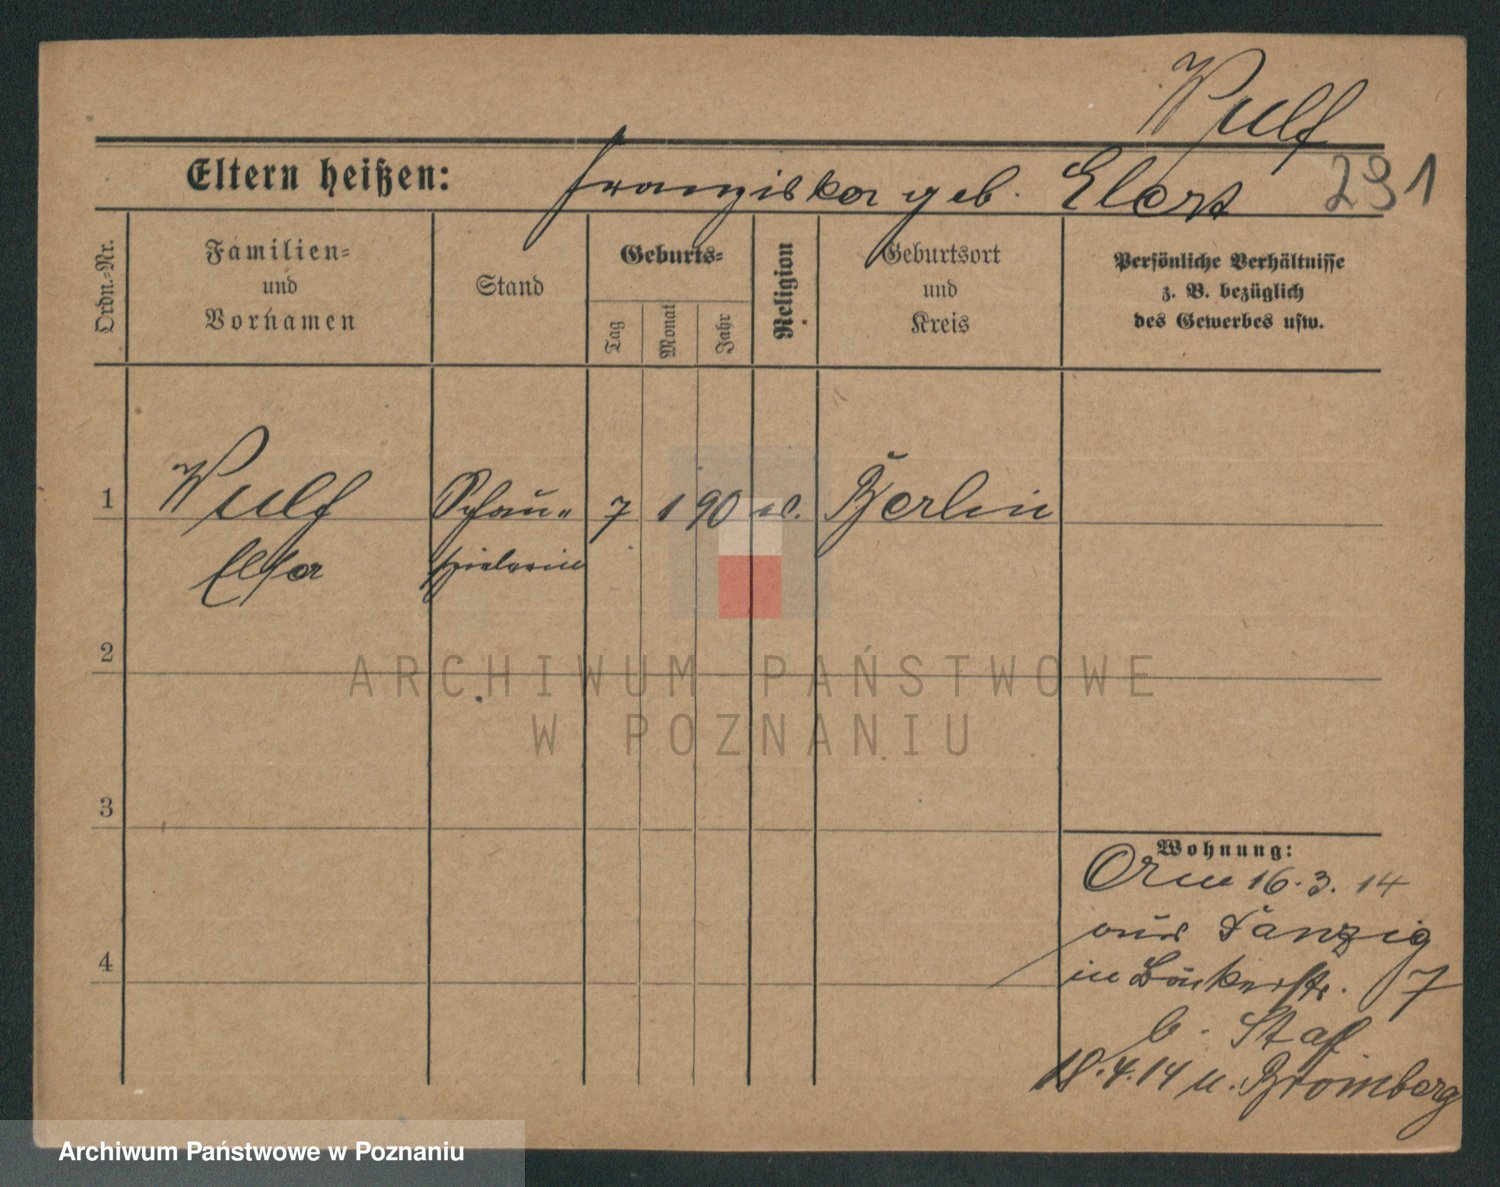 Wulf
Eltern heißen: Franziska geb. Elert 291
Ordn.-Nr.
Familien-
und
Vornamen
Stand
Geburts-
Tag
Monat
Jahr
Religion
Geburtsort
und
Kreis
Persönliche Verhältnisse
z. B. bezüglich
des Gewerbes usw.
1 Wulf Schau- 7 1 90 Berlin
Elsa spielerin
2
3
4
ARCHIWUM PAŃSTWOWE
W POZNANIU
Wohnung:
16.3.14
aus Danzig
in Bäckerstr. 7
b. Staff
18.4.14 n. Bromberg
Archiwum Państwowe w Poznaniu